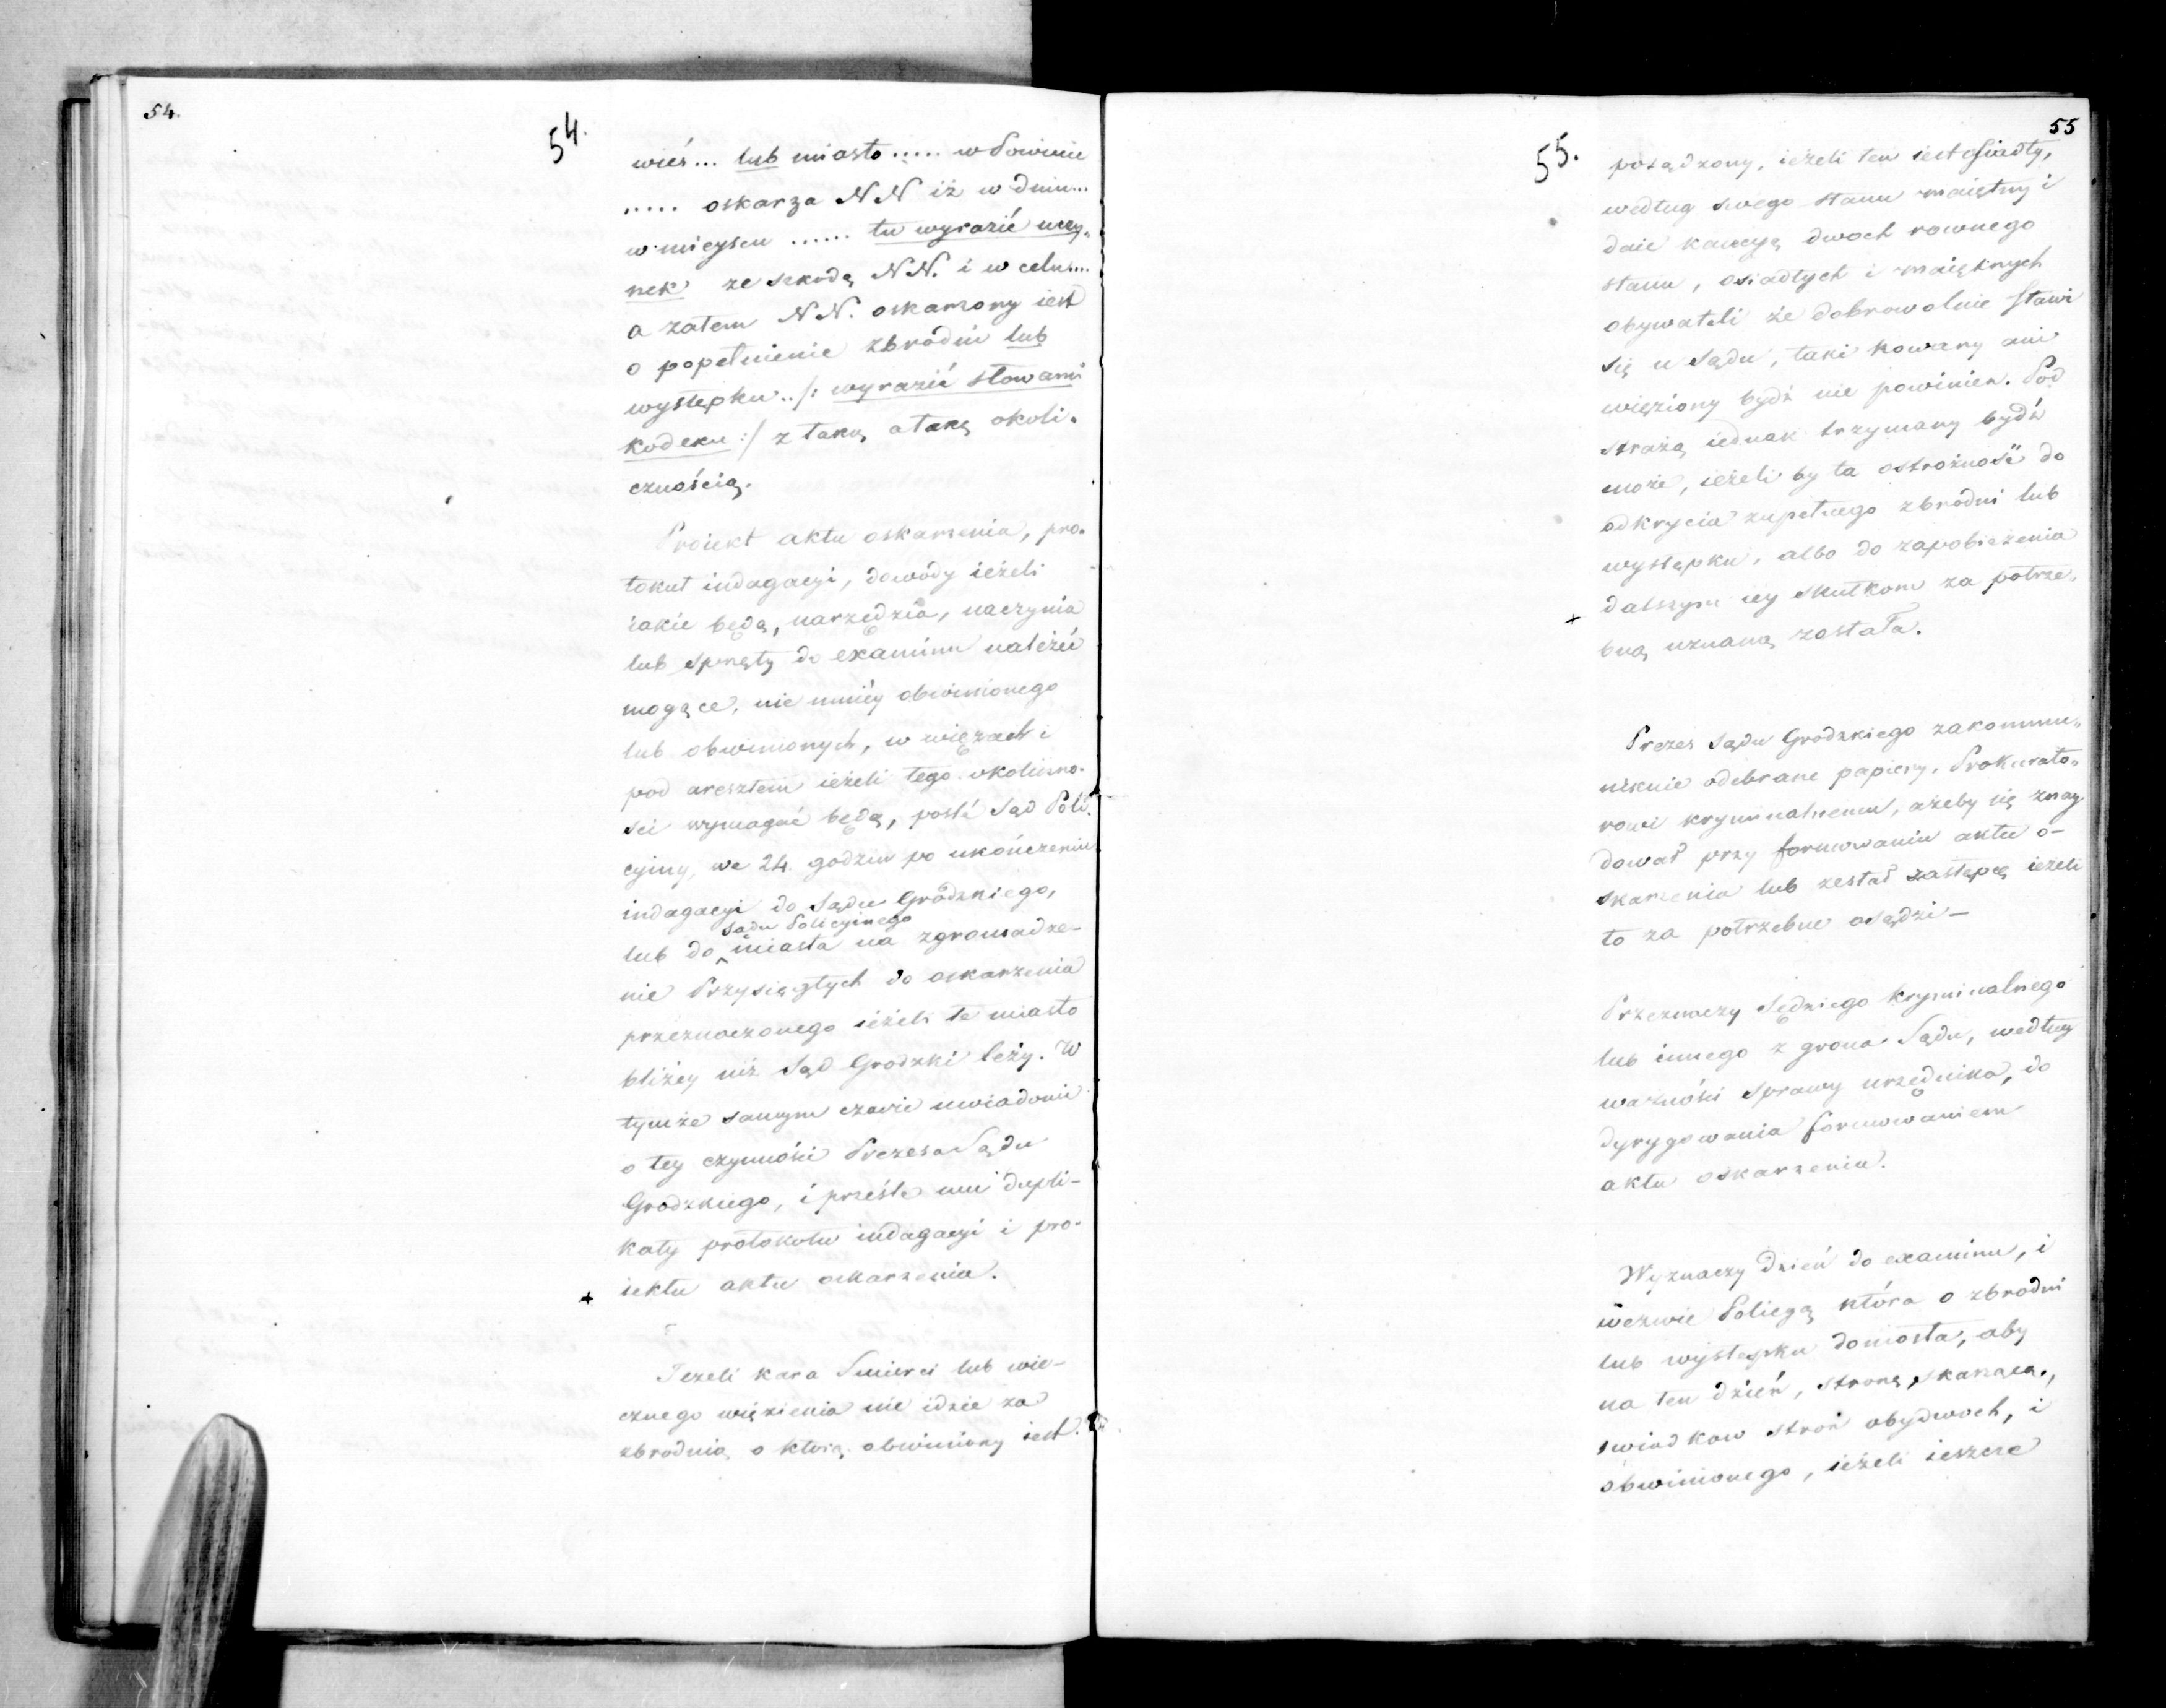 54.
54.
wieś... lub miasto ..... w Powiecie
..... oskarża NN iż w dniu...
w mieyscu ...... tu wyrazić uczy„
nek ze szkodą NN. i w celu....
a zatem NN. oskarżony iest
o popełnienie zbrodni lub
występku.. /: wyrazić słowami
kodexu :/ z taką a taką okoli.
cznością.
Proiekt aktu oskarżenia, pro.
tokuł indagacyi, dowody ieżeli
iakie będą, narzędzia, naczynia
lub sprzęty do examinu należéć
mogące, nie mniéy obwinionego
lub obwinionych, w więzach i
pod aresztem ieżeli tego okoliczno.
ści wymagać będą, pośle Sąd Poli.
cyiny, we 24 godzin po ukończeniu
indagacyi do Sądu Grodzkiego,
Sądu Policyinego
lub do miasta na zgromadze-
nie Przysięgłych do oskarżenia
przeznaczonego ieżeli te miasto
bliżey niż Sąd Grodzki leży. W
tymże samym czasie uwiadomi
o tey czynności Prezesa Sądu
Grodzkiego, i prześle mu dupli-
katy protokołu indagacyi i pro-
iektu aktu oskarżenia.
+
Jeżeli kara Smierci lub wie-
cznego więzienia nie idzie za
zbrodnią o którą obwiniony iest
55
55.
posądzony, ieżeli ten iest osiadły,
według swego stanu maiętny i
daie kaucyą dwoch rownego
stanu, osiadłych i maiętnych
obywateli że dobrowolnie stawi
się u Sądu, taki kowany ani
więziony bydź nie powinien. Pod
strażą iednak trzymany bydź
może, ieżeli by ta ostrożność do
odkrycia zupełnego zbrodni lub
występku, albo do zapobieżenia
dalszym iey skutkom za potrze„
+
bną uznaną została.
Prezes Sądu Grodzkiego zakommu„
nikuie odebrane papiery, Prokurato„
rowi kryminalnemu, ażeby się znay
dował przy formowaniu aktu o-
skarżenia lub zesłał zastępcę ieżeli
to za potrzebne osądzi—
Przeznaczy Sędziego kryminalnego
lub innego z grona Sądu, według
ważności Sprawy urzędnika, do
dyrygowania formowaniem
aktu oskarżenia.
Wyznaczy dzień do examinu, i
wezwie Policyą która o zbrodni
lub występku doniosła, aby
na ten dzień, stronę skarżącą,
swiadkow stron obydwoch, i
obwinionego, ieżeli ieszcze